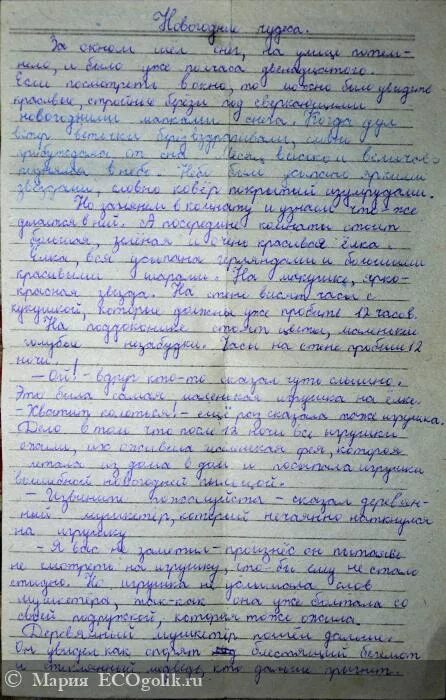 Новогодние чудеса.
За окном шёл снег, на улице потем-
нело, и было уже полчаса двенадцатого.
Если посмотреть в окно, то можно было увидеть
красивые, стройные берёзы под сверкающими
новогодними шапками снега. Когда дул
ветер веточки берёз вздрагивали, словно
пробуждаясь от сна. Месяц высоко и величаво
поднялся в небе. Небо было усыпано яркими
звёздами, словно ковёр покрытый изумрудами.
Но заглянем в комнату и узнаем что-же
делается в ней. А посередине комнаты стоит
большая, зелёная и очень красивая ёлка.
Ёлка, вся усыпана гирляндами и большими
красивыми шарами. На макушке, ярко-
красная звезда. На стене висят часы с
кукушкой, которые должны уже пробить 12 часов.
На подоконнике стоят цветы, маленькие
голубые незабудки. Часы на стене пробили 12
ночи.
- Ой! - вдруг кто-то сказал чуть слышно.
Это была самая, маленькая игрушка на ёлке.
- Хватит колоться! - ещё раз сказала та же игрушка.
Дело в том что после 12 ночи все игрушки
ожили, их оживила маленькая фея, которая
летала из дома в дом и посыпала игрушки
волшебной новогодней пыльцой.
- Извините пожалуйста - сказал деревян-
ный мушкетёр, который нечаянно наткнулся
на игрушку
- Я вас не заметил - произнёс он пытаясь
не смотреть на игрушку, что-бы ему не стало
стыдно. Но игрушка не услышала слов
мушкетёра, так-как она уже болтала со
своей подружкой, которая тоже ожила.
Деревянный мушкетёр пошёл дальше.
Он увидел как спорят блестящий бегемот
и стеклянный медведь, кто дальше прыгнет.
© Мария ECOgolik.ru